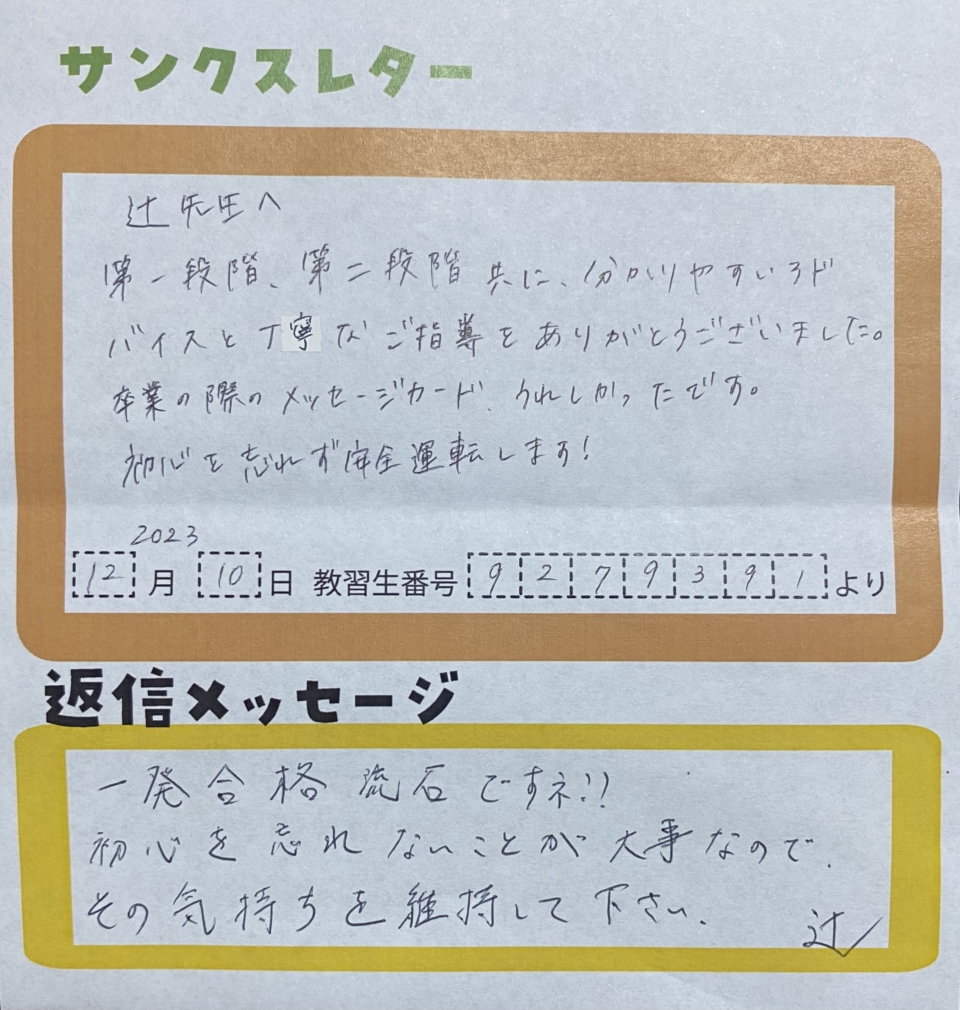 サンクスレター
辻先生へ
第一段階、第二段階共に、分かりやすいアド
バイスと丁寧なご指導をありがとうございました。
卒業の際のメッセージカード、うれしかったです。
初心を忘れず安全運転します!
2023
12月10日 教習生番号9279391より
返信メッセージ
一発合格流石ですネ!!
初心を忘れないことが大事なので、
その気持ちを維持して下さい。
辻